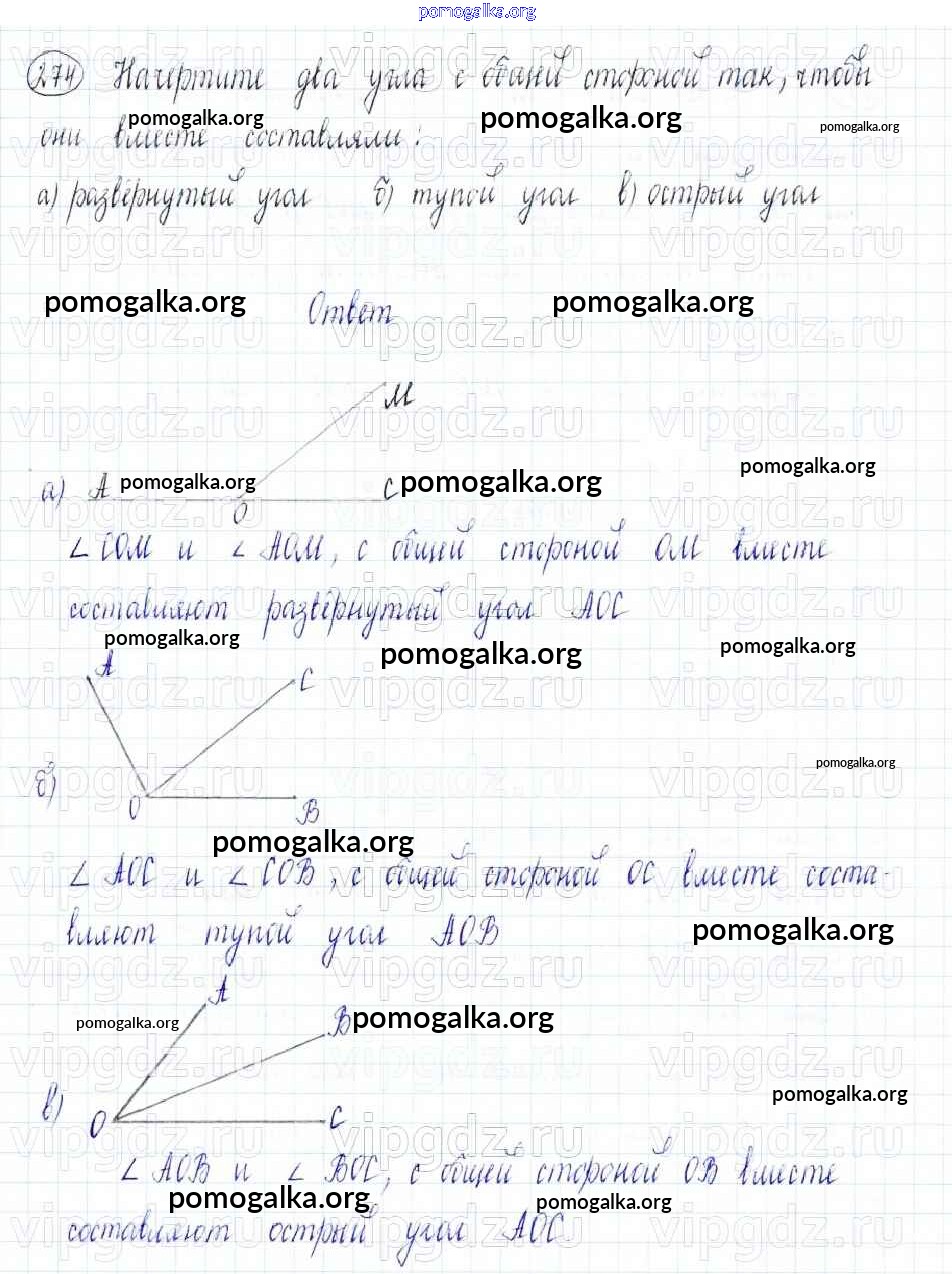 pomogalka.org
274 Начертите два угла с общей стороной так, чтобы
pomogalka.org pomogalka.org pomogalka.org
они вместе составляли:
а) развёрнутый угол б) тупой угол в) острый угол
pomogalka.org Ответ pomogalka.org
М
pomogalka.org
а) А pomogalka.org С pomogalka.org
О
∠СОМ и ∠АОМ, с общей стороной ОМ вместе
составляют развёрнутый угол АОС
pomogalka.org pomogalka.org pomogalka.org
А С
pomogalka.org
б)
О В
pomogalka.org
∠АОС и ∠СОВ, с общей стороной ОС вместе соста-
вляют тупой угол АОВ
pomogalka.org
А
pomogalka.org В pomogalka.org
pomogalka.org
в) О С
∠АОВ и ∠ВОС, с общей стороной ОВ вместе
pomogalka.org pomogalka.org
составляют острый угол АОС
vipgdz.ru